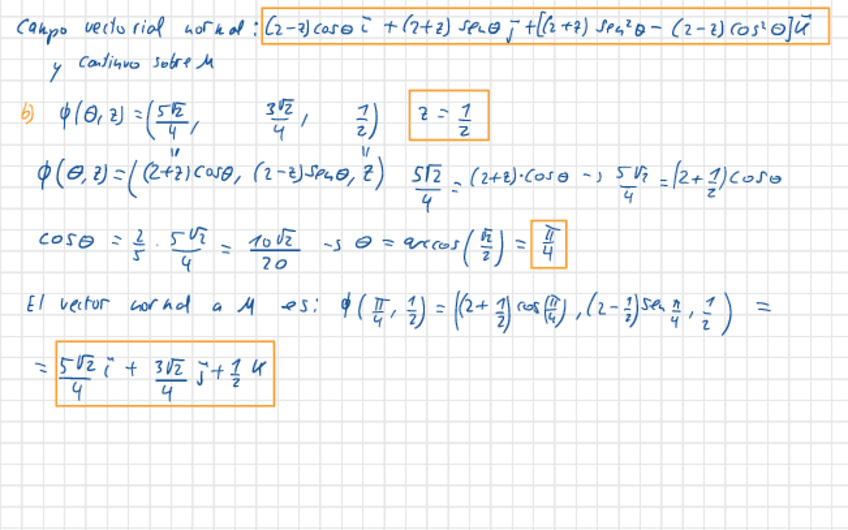 Campo vectorial normal: (2-z)cosθ i + (2+z) senθ j + [(2+z) sen²θ - (2-z) cos²θ] k
y continuo sobre M
b) ϕ(θ, z) = (5√2/4, 3√2/4, 1/2) z = 1/2
ϕ(θ, z) = ((2+z)cosθ, (2-z)senθ, z) 5√2/4 = (2+z)·cosθ → 5√2/4 = (2+1/2)cosθ
cosθ = 2/5 · 5√2/4 = 10√2/20 → θ = arccos(√2/2) = π/4
El vector normal a M es: ϕ(π/4, 1/2) = ((2+1/2)cos(π/4), (2-1/2)sen π/4, 1/2) =
= 5√2/4 i + 3√2/4 j + 1/2 k